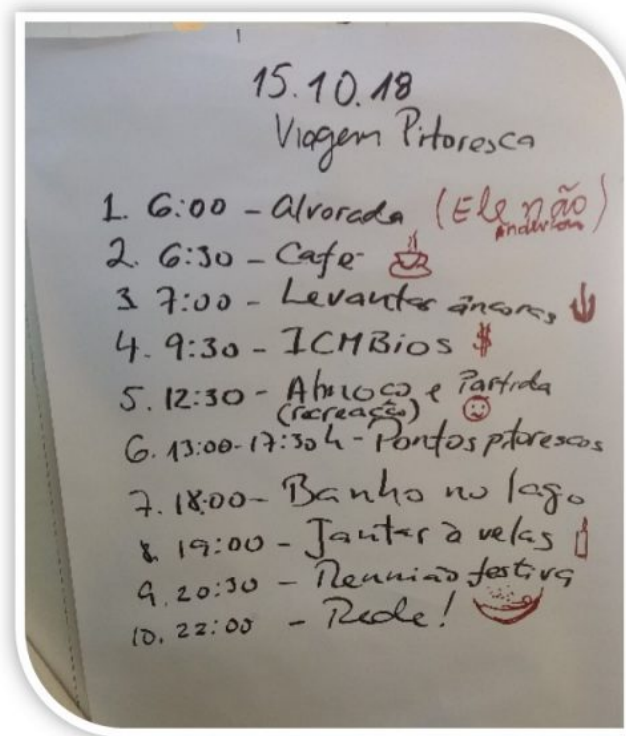 15.10.18
Viagem Pitoresca
1. 6:00 - Alvorada (Ele não)
2. 6:30 - Café
3. 7:00 - Levantar âncoras
4. 9:30 - ICMBios $
5. 12:30 - Almoço e Partida
(recreação)
6. 13:00-17:30h - Pontos pitorescos
7. 18:00 - Banho no lago
8. 19:00 - Jantar à velas
9. 20:30 - Reunião festiva
10. 22:00 - Rede!